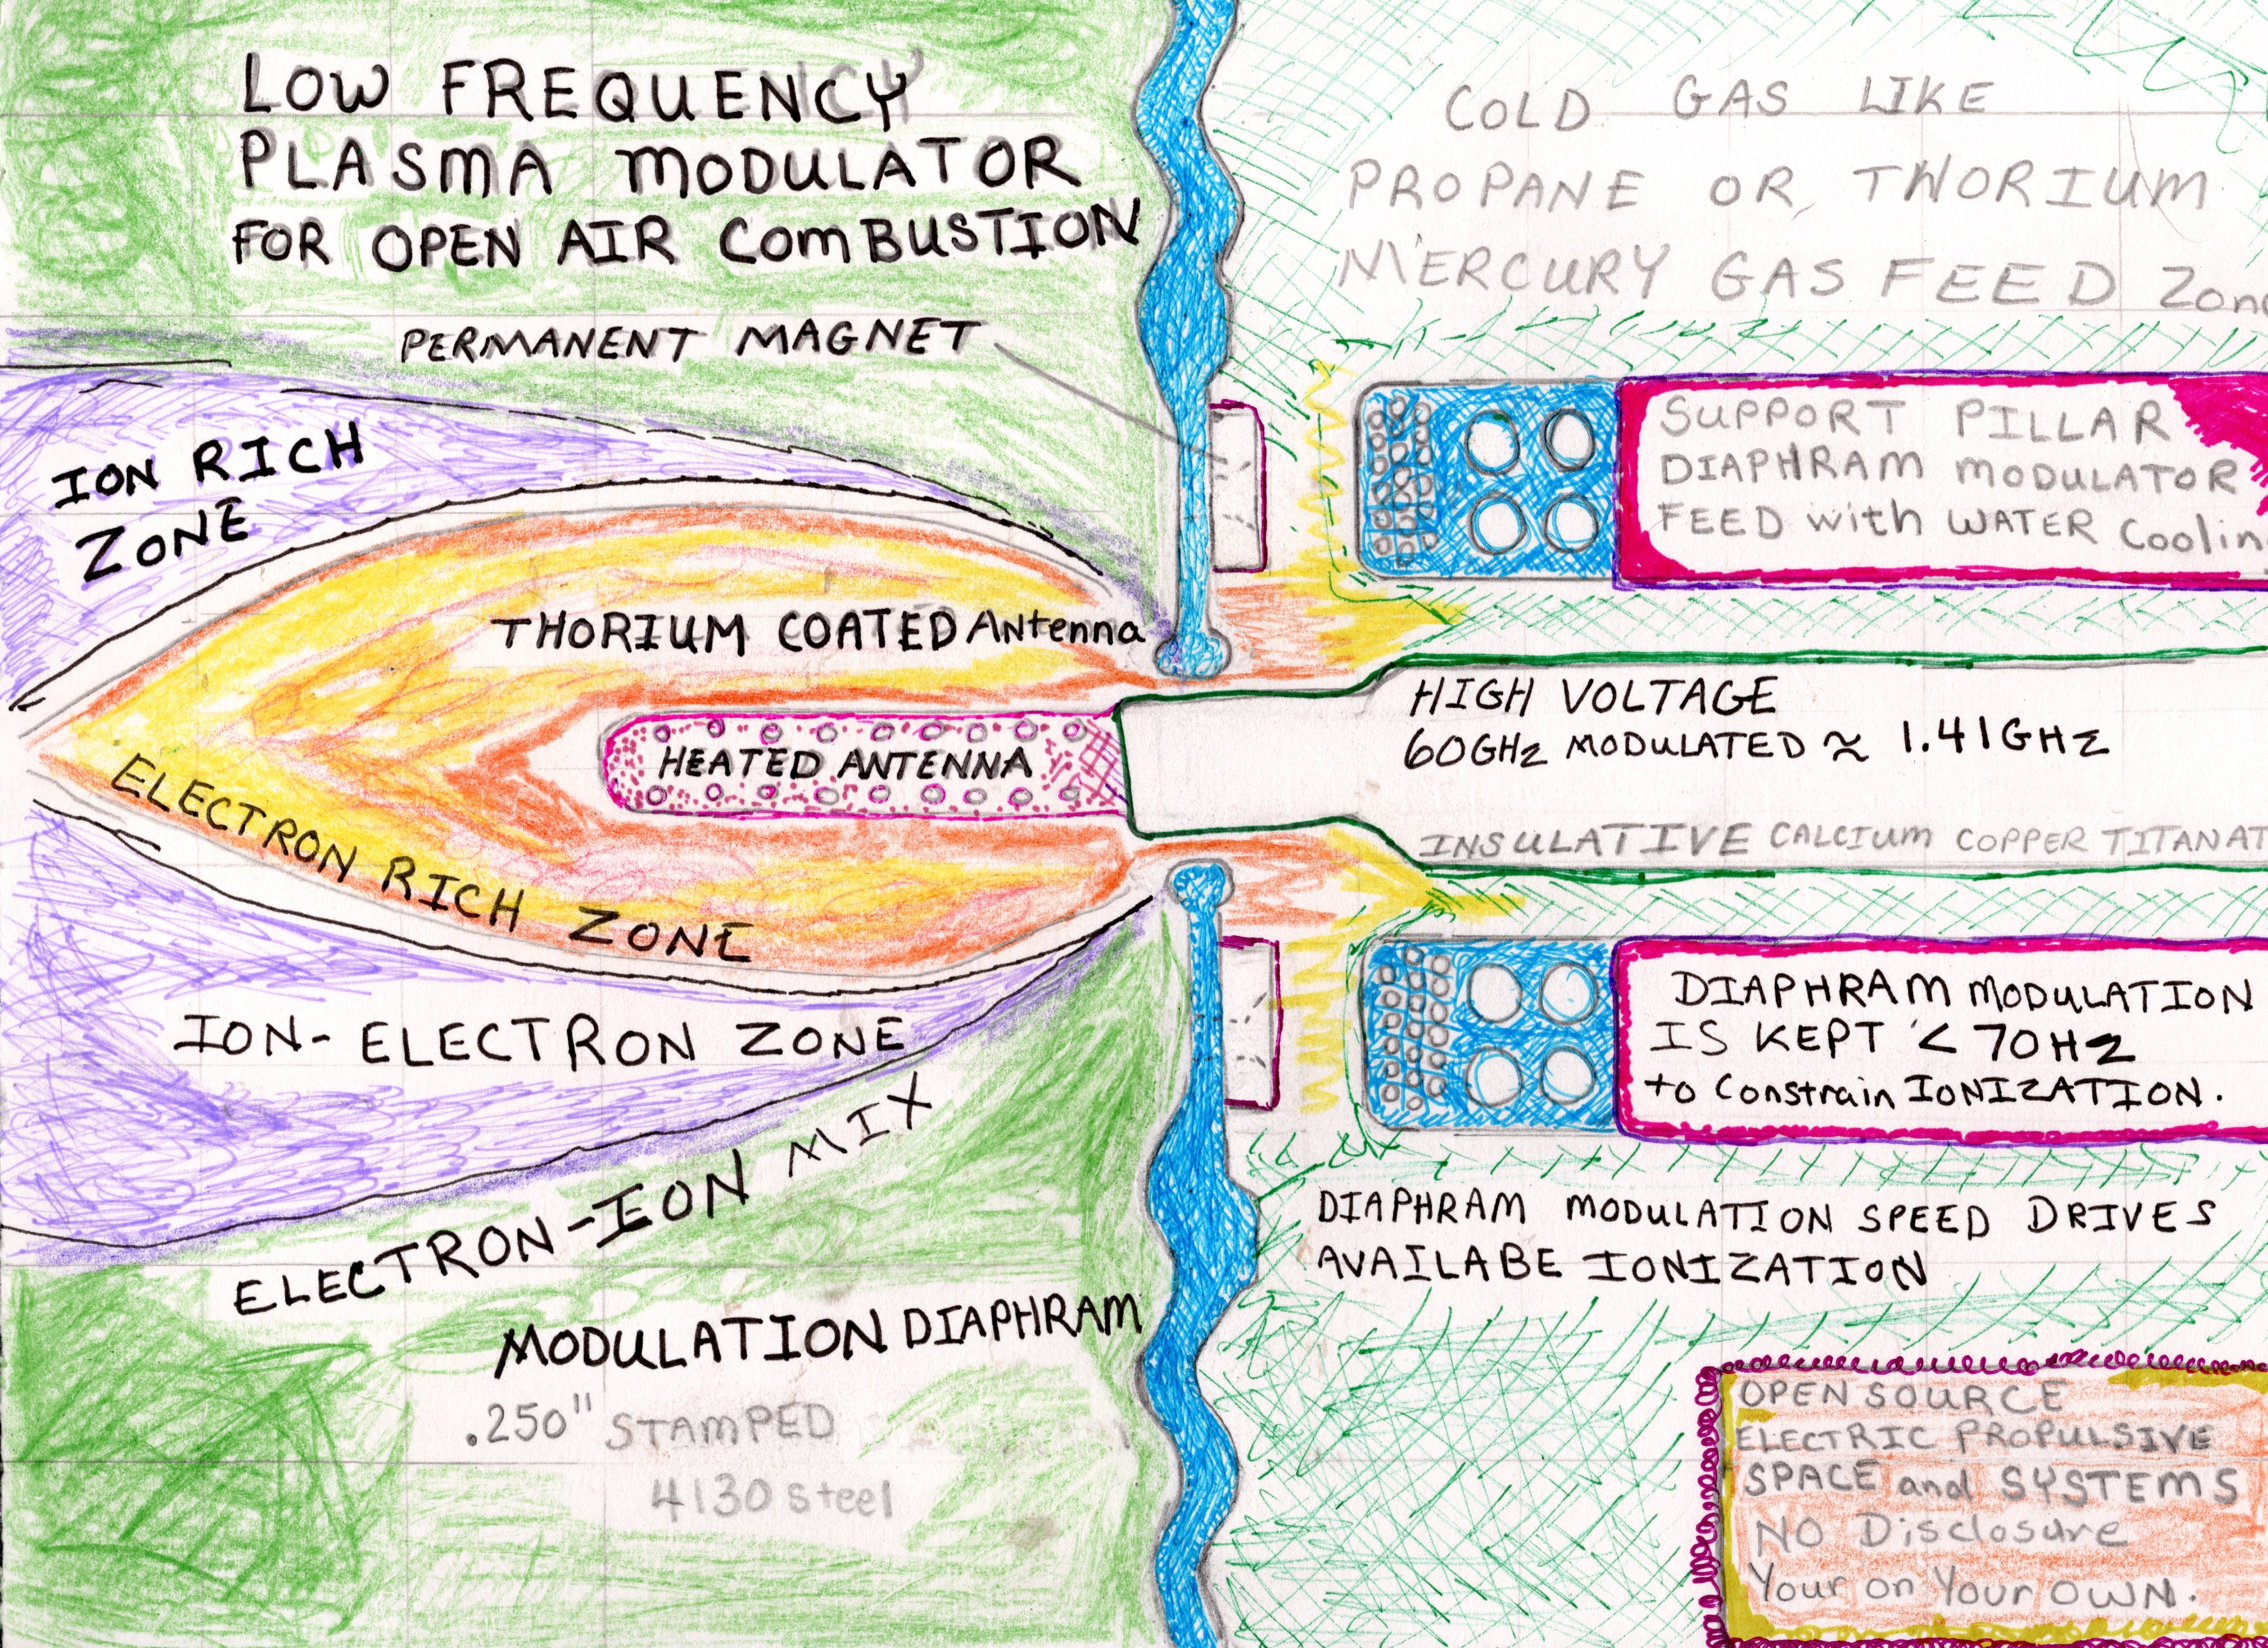 LOW FREQUENCY
PLASMA MODULATOR
FOR OPEN AIR COMBUSTION
PERMANENT MAGNET
ION RICH
ZONE
THORIUM COATED Antenna
HEATED ANTENNA
ELECTRON RICH ZONE
ION-ELECTRON ZONE
ELECTRON-ION MIX
MODULATION DIAPHRAM
.250" STAMPED
4130 steel
COLD GAS LIKE
PROPANE OR THORIUM
MERCURY GAS FEED Zon
SUPPORT PILLAR
DIAPHRAM MODULATOR
FEED with WATER Coolin
HIGH VOLTAGE
60GHz MODULATED ≈ 1.41GHz
INSULATIVE CALCIUM COPPER TITANAT
DIAPHRAM MODULATION
IS KEPT < 70Hz
to Constrain IONIZATION.
DIAPHRAM MODULATION SPEED DRIVES
AVAILABE IONIZATION
OPEN SOURCE
ELECTRIC PROPULSIVE
SPACE and SYSTEMS
NO Disclosure
Your on Your OWN.